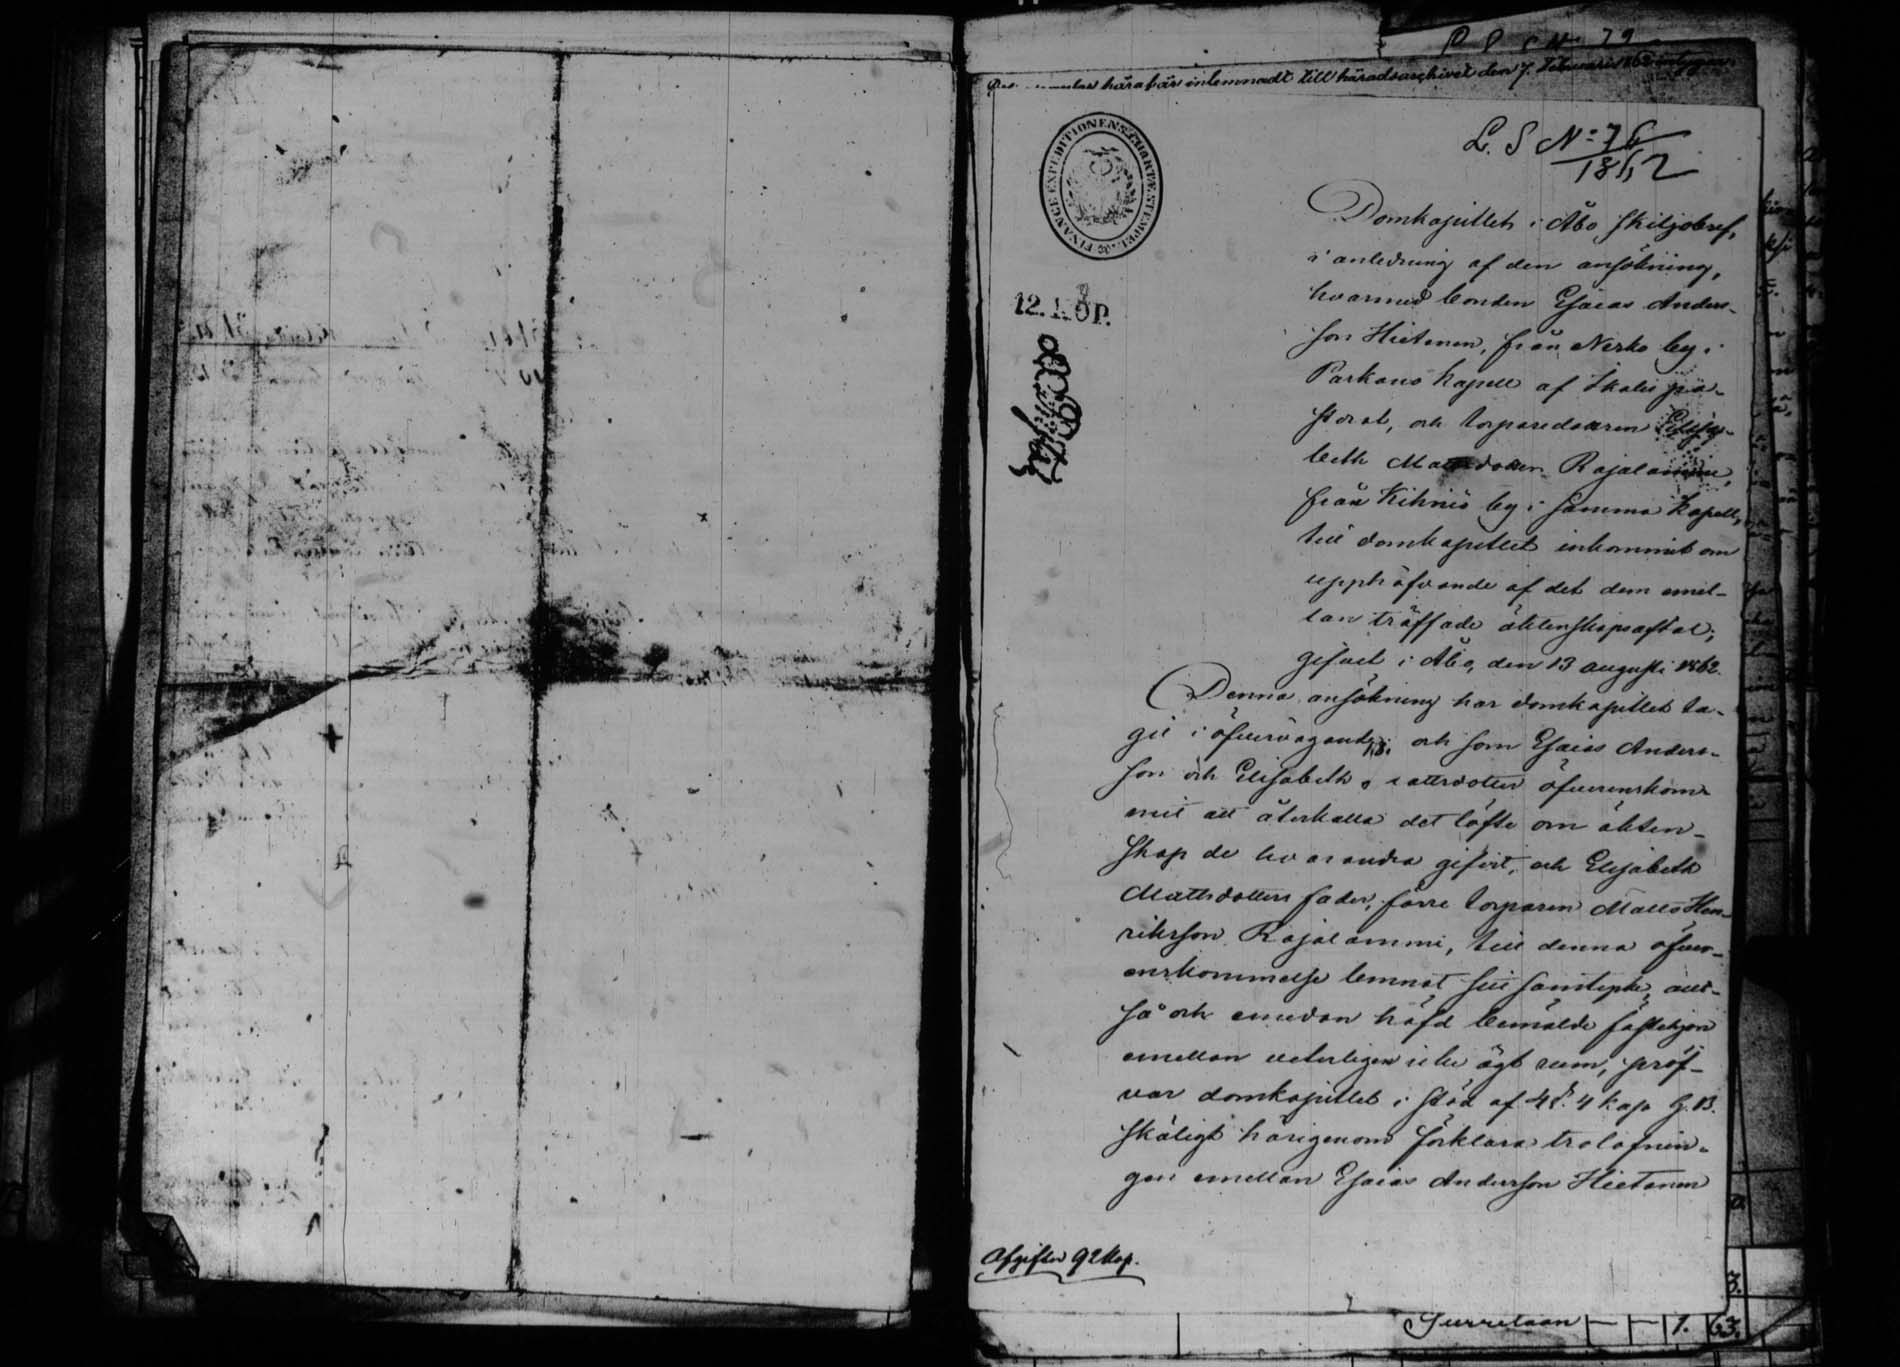 P P S No 79
härabär inlemnadt till häradsarchivet den 7. Februari 1862 intygar.
L. S No 76
1862
FINANCE EXPEDITIONENS CHARTÆ STEMPEL
12. KOP.
Domkapitlets i Åbo skiljobref,
i anledning af den ansökning,
hvarmed bonden Esaias Anders-
son Hietanen, från Nerko by i
Parkano kapell af Ikalis pa-
storat, och torparedottren Elisa-
beth Mattsdotter Rajalammi,
från Kihniö by i samma kapell,
till domkapitlet inkommit om
upphäfvande af det dem emel-
lan träffade äktenskapsaftal;
gifvet i Åbo, den 13 augusti 1862.
Denna ansökning har domkapitlet ta-
git i öfvervägande; och som Esaias Anders-
son och Elisabeth Mattsdotter öfverenskom-
mit att återkalla det löfte om äkten-
skap de hvarandra gifvit, och Elisabeth
Mattsdotters fader, förre torparen Matts Hen-
riksson Rajalammi, till denna öfver-
enskommelse lemnat sitt samtycke, allt-
så och emedan häfd bemälde fästehjon
emellan veterligen icke ägt rum, pröf-
var domkapitlet i stöd af 4 §. 4 kap G. B.
skäligt härigenom förklara trolofnin-
gen emellan Esaias Andersson Hietanen
Afgiften 92 kop.
Surretaan — — 1. 63.